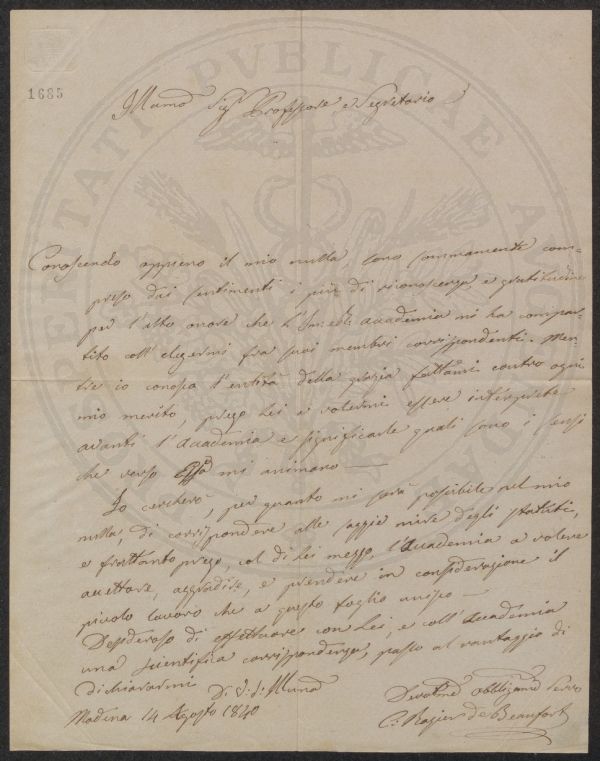 1685
Illmo Sigr Professore e Segretario
Conoscendo appieno il mio nulla, sono sommamente com-
preso dai sentimenti i più di riconoscenza, e gratitudine
per l'alto onore che l' Accademia mi ha compar-
tito coll' elegermi fra suoi membri corrispondenti. Men-
tre io conosco l'entità della grazia fattami contro ogni
mio merito, prego Lei a volermi essere interprete
avanti l'Accademia e significarle quali sono i sensi
che verso Essa mi animano —
Io cercherò, per quanto mi sarà possibile nel mio
nulla, di corrispondere alle saggie mire degli statuti,
e frattanto prego, col di Lei mezzo, l'Accademia a volere
accettare, aggradire, e prendere in considerazione il
piccolo lavoro che a questo foglio unisco —
Desideroso di effettuare con Lei, e coll' Accademia
una scientifica corrispondenza, passo al vantaggio di
dichiararmi
Di V. S. Illma
Modena 14 Agosto 1840
Devotmo obbligamo Servo
C. Rogier de Beaufort